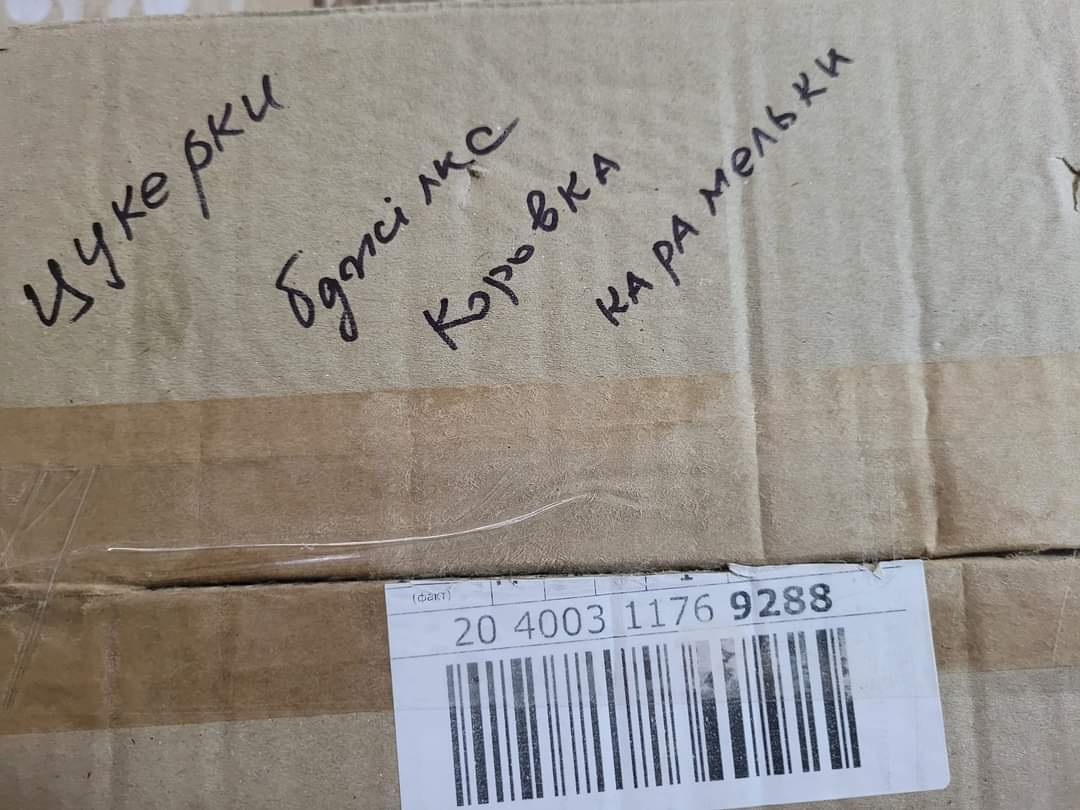 цукерки
бджілкс
коровка
карамельки
(факт)
20 4003 1176 9288